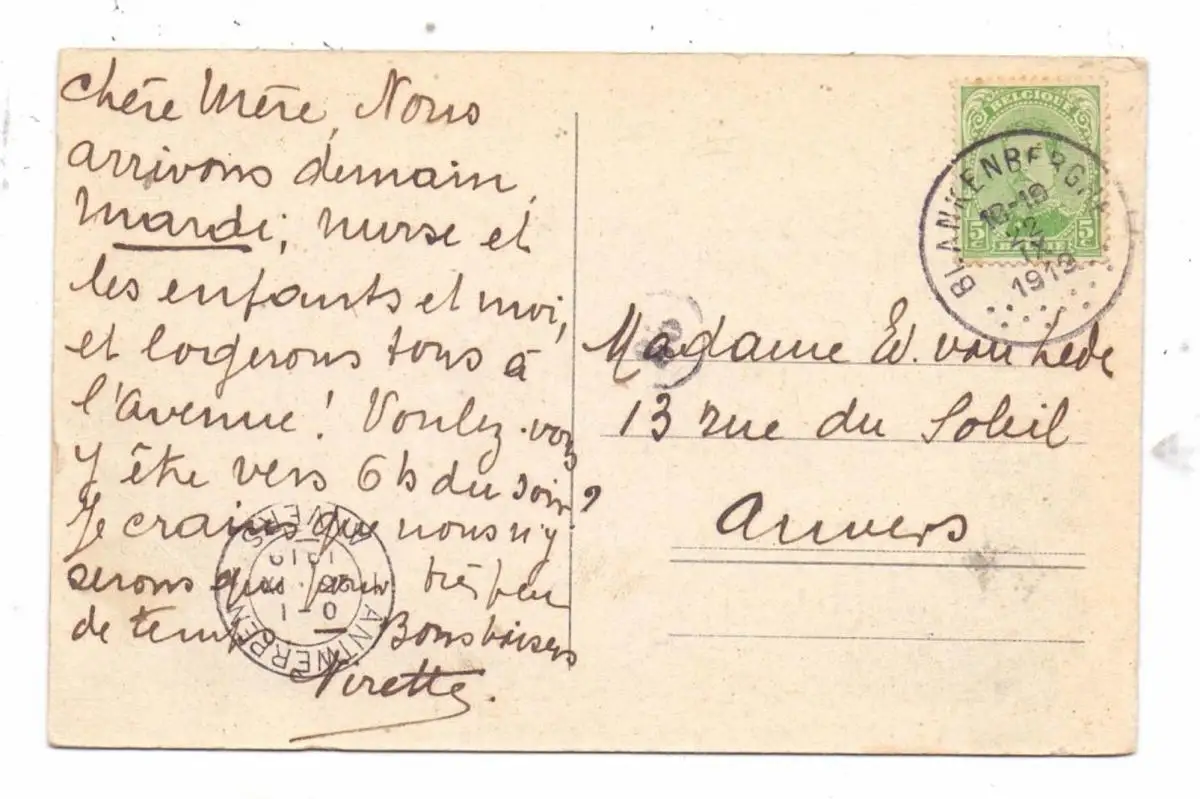 Chère Mère, Nous
arrivons demain,
mardi, nurse et
les enfants et moi,
et logerons tous à
l'avenue! Voulez-vous
y être vers 6 h du soir?
Je crains que nous n'y
serons que pour très peu
de temps Bons baisers
Nirette.
BELGIQUE
5c 5c
BELGIË
BLANKENBERGHE
18-19
22
IX
1919
Madame Ed. van Lede
13 rue du Soleil
Anvers
ANTWERPEN
ANVERS
0-1
1919